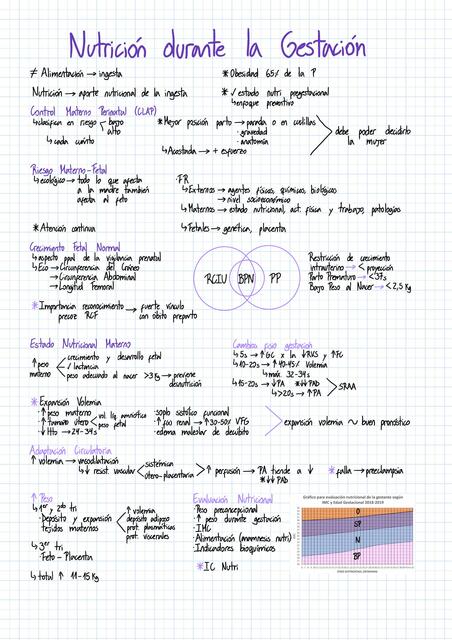 Nutrición durante la Gestación
≠ Alimentación → ingesta
* Obesidad 65% de la P
Nutrición → aporte nutricional de la ingesta
* ✓ estado nutri pregestacional
↳ enfoque preventivo
Control Materno Perinatal (CLAP)
↳ clasifica en riesgo
bajo
alto
↳ cada cuánto
* Mejor posición parto → parada o en cuclillas
· gravedad
· anatomía
↳ Acostada → + esfuerzo
debe poder decidirlo
la mujer
Riesgo Materno-Fetal
↳ ecológico → todo lo que afecta
a la madre también
afecta al feto
* Atención continua
·FR
↳ Externos → agentes físicos, químicos, biológicos
→ nivel socioeconómico
↳ Maternos → estado nutricional, act. física y trabajo, patologías
↳ Fetales → genética, placenta
Crecimiento Fetal Normal
↳ aspecto ppal de la vigilancia prenatal
↳ Eco → Circunferencia del Cráneo
→ Circunferencia Abdominal
→ Longitud Femoral
* Importancia reconocimiento → fuerte vínculo
precoz RCF
con óbito preparto
RCIU
BPN
PP
Restricción de crecimiento
intrauterino → < proyección
Parto Prematuro → < 37s
Bajo Peso al Nacer → < 2,5 Kg
Estado Nutricional Materno
↑ peso
materno
crecimiento y desarrollo fetal
/ lactancia
peso adecuado al nacer > 3 Kg → previene
desnutrición
* Expansión Volemia
· ↑ peso materno
· ↑ tamaño útero
vol. líq. amniótico
peso fetal
· ↓ Hto → 24-34s
· soplo sistólico funcional
· ↑ fxo renal → ↑ 30-50% VFG
· edema maleolar de decúbito
expansión volemia ~ buen pronóstico
Cambios fisio gestación
↳ 5s → ↑ GC x la ↓ RVS y ↑ FC
↳ 10-20s → ↑ 40-45% Volemia
↳ máx. 32-34s
↳ 15-20s → ↓ PA * ↓↓ PAD
↳ > 20s → ↑ PA
SRAA
Adaptación Circulatoria
↑ volemia → vasodilatación
↳ ↓ resist. vascular
sistémica
útero-placentaria
↑ perfusión → PA tiende a ↓
* ↓↓ PAD
* falla → preeclampsia
↑ Peso
↳ 1er y 2do tri
· Depósito y expansión
tejidos maternos
↑ volemia
depósito adiposo
prot. plasmáticas
prot. viscerales
↳ 3er tri
· Feto - Placenta
↳ total ↑ 11-15 Kg
Evaluación Nutricional
· Peso preconcepcional
· ↑ peso durante gestación
· IMC
· Alimentación (anamnesis nutri)
· Indicadores bioquímicos
* IC Nutri
Gráfico para evaluación nutricional de la gestante según
IMC y Edad Gestacional 2018-2019
O
SP
N
BP